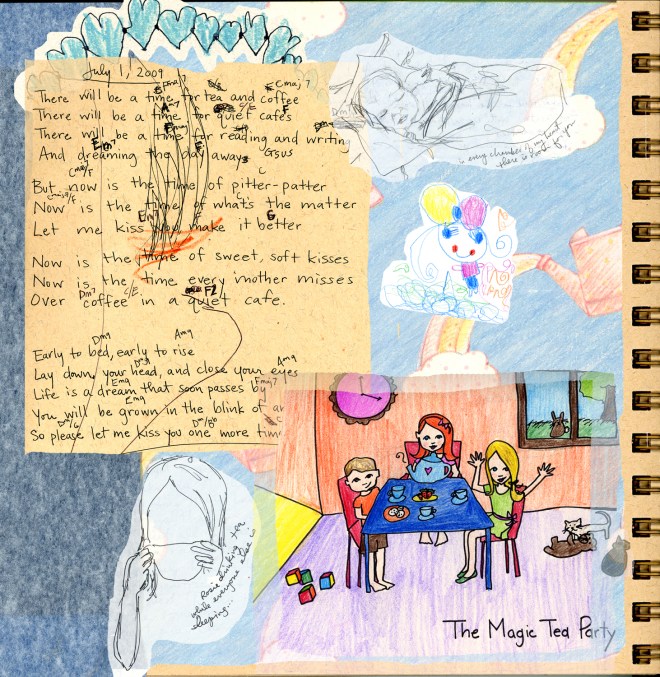 July 1, 2009
There will be a time for tea and coffee
There will be a time for quiet cafés
There will be a time for reading and writing
And dreaming the day away
Gsus
But now is the time of pitter-patter
Now is the time of what's the matter
Em
G
Let me kiss now make it better
Now is the time of sweet, soft kisses
Now is the time every mother misses
Dm7
C/E
F2
Over coffee in a quiet cafe.
Dm9
Am9
Early to bed, early to rise
Dm9
Am9
Lay down your head, and close your eyes
Em9
Fmaj7
Life is a dream that soon passes by
Em9
You will be grown in the blink of an
Dm/G
Dm/Bb
So please let me kiss you one more time
in every chamber of my heart
there is room for you
Rosie drinking tea
while everyone else is
sleeping...
The Magic Tea Party